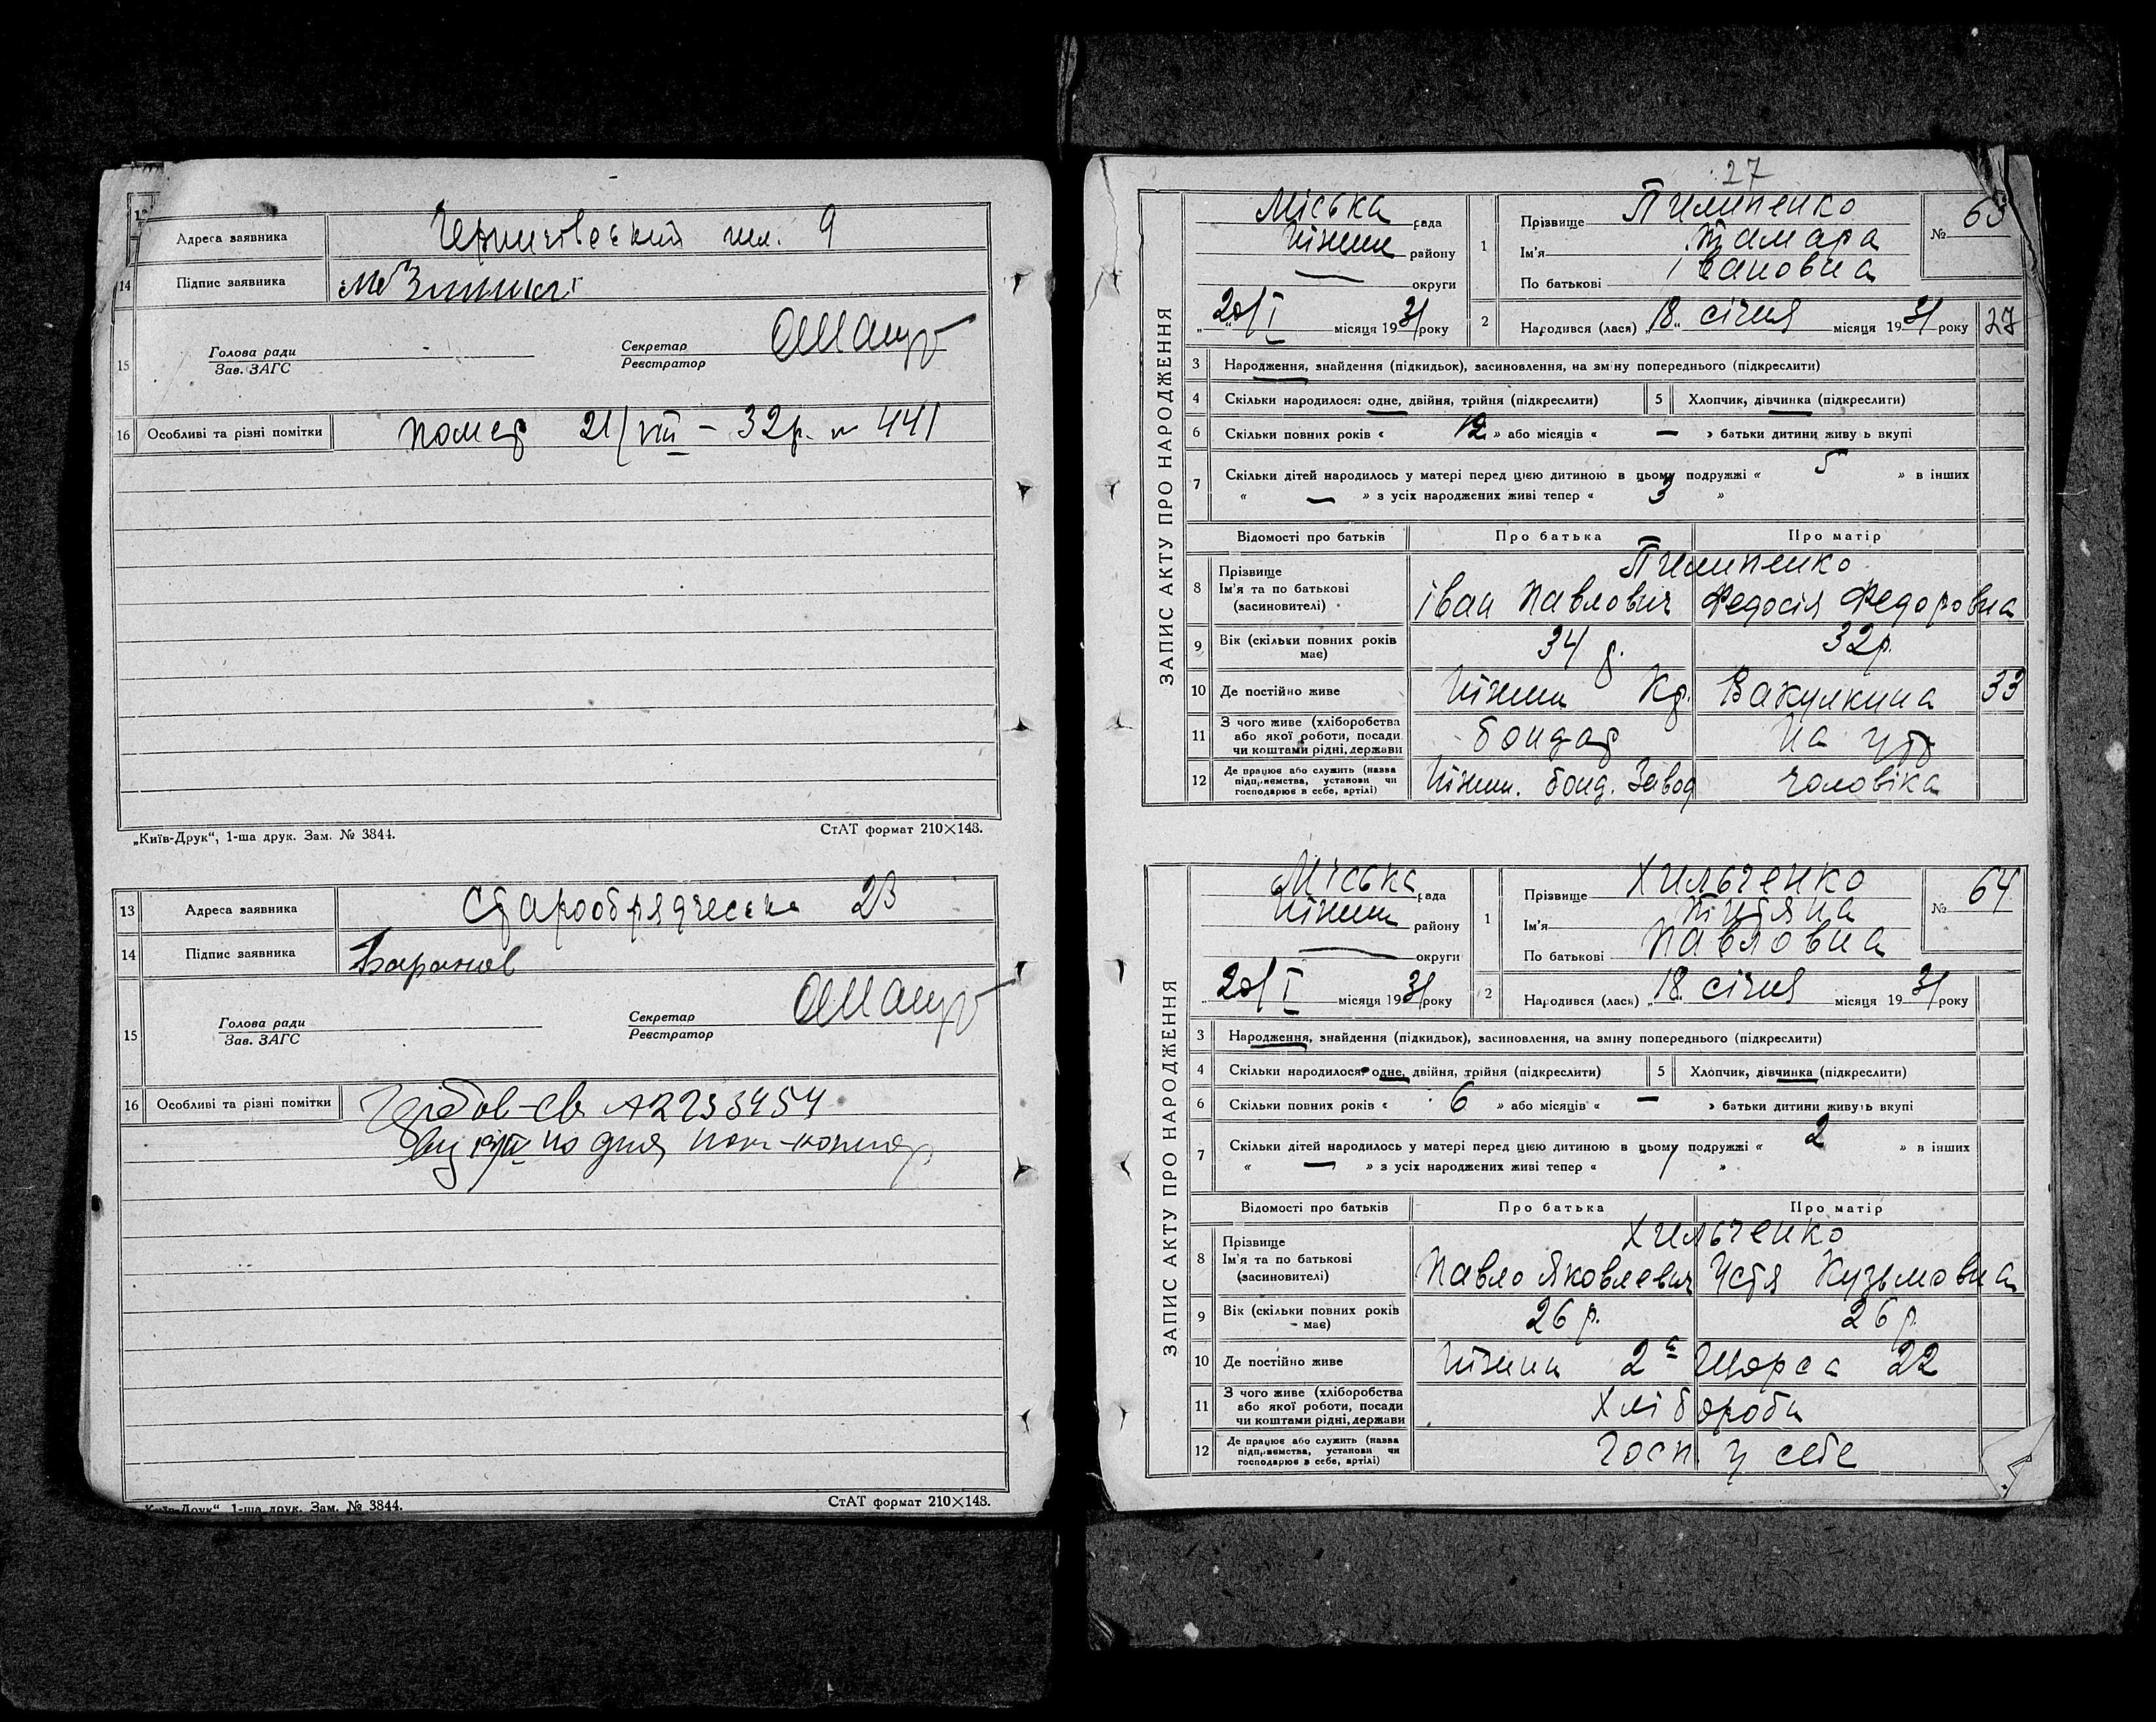 13
Адреса заявника Чернигівський шл. 9
14 Підпис заявника
15 Голова ради Секретар
Зав. ЗАГС Реєстратор
16 Особливі та різні помітки помер 21/VIII – 32р. № 441
„Київ-Друк“, 1-ша друк. Зам. № 3844. СтАТ формат 210×148.
13 Адреса заявника Старообрядческа 23
14 Підпис заявника Баранов
15 Голова ради Секретар
Зав. ЗАГС Реєстратор
16 Особливі та різні помітки
„Київ-Друк“, 1-ша друк. Зам. № 3844. СтАТ формат 210×148.
27
ЗАПИС АКТУ ПРО НАРОДЖЕННЯ
Міська рада 1 Прізвище Пилипенко № 63
Ніжин району Ім'я Тамара
— округи По батькові Івановна
„20/I місяця 1931 року 2 Народився (лася) „18„ січня місяця 1931 року 27
3 Народження, знайдення (підкидьок), засиновлення, на зміну попереднього (підкреслити)
4 Скільки народилося: одне, двійня, трійня (підкреслити) 5 Хлопчик, дівчинка (підкреслити)
6 Скільки повних років « 12 » або місяців « — » батьки дитини живуть вкупі
7 Скільки дітей народилось у матері перед цією дитиною в цьому подружжі « 5 » в інших
« — » з усіх народжених живі тепер « 3 »
Відомості про батьків Про батька Про матір
8 Прізвище Пилипенко
Ім'я та по батькові Іван Павлович Федосія Федоровна
(засиновителі)
9 Вік (скільки повних років має) 34 р. 32р.
10 Де постійно живе Ніжин Кр. Вакулкина 33
11 З чого живе (хліборобства
або якої роботи, посади бондар На утр
чи коштами рідні, держави
12 Де працює або служить (назва
підприємства, установи чи Ніжин. бонд. Завод чоловіка
господарює в себе, артілі)
ЗАПИС АКТУ ПРО НАРОДЖЕННЯ
Міська рада 1 Прізвище Хильченко № 64
Ніжин району Ім'я Титяна
— округи По батькові Павловна
„20/I місяця 1931 року 2 Народився (лася) „18„ січня місяця 1931 року
3 Народження, знайдення (підкидьок), засиновлення, на зміну попереднього (підкреслити)
4 Скільки народилося: одне, двійня, трійня (підкреслити) 5 Хлопчик, дівчинка (підкреслити)
6 Скільки повних років « 6 » або місяців « — » батьки дитини живуть вкупі
7 Скільки дітей народилось у матері перед цією дитиною в цьому подружжі « 2 » в інших
« — » з усіх народжених живі тепер « 1 »
Відомості про батьків Про батька Про матір
8 Прізвище Хильченко
Ім'я та по батькові Павло Яковлевич Устя Кузьмовна
(засиновителі)
9 Вік (скільки повних років має) 26 р. 26 р.
10 Де постійно живе Ніжин 2а Щорса 22
11 З чого живе (хліборобства
або якої роботи, посади Хлібороби
чи коштами рідні, держави
12 Де працює або служить (назва
підприємства, установи чи Госп у себе
господарює в себе, артілі)